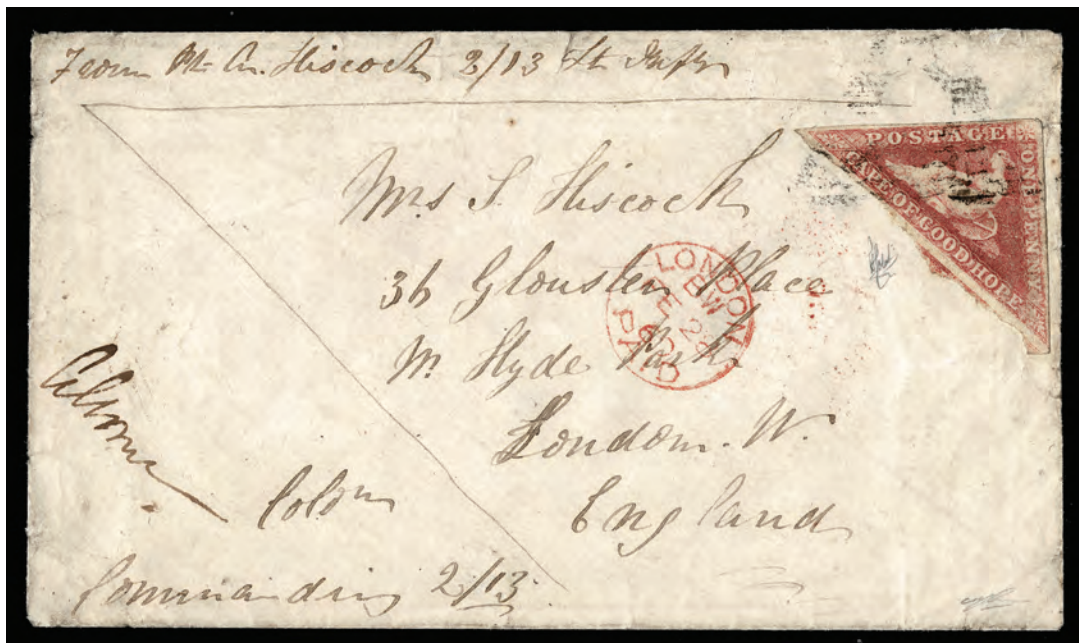 From Pt A. Hiscock 2/13 Lt Infy
POSTAGE
ONE PENNY
CAPE OF GOOD HOPE
Mrs S. Hiscock
36 Glouster Place
Hyde Park
London. W.
England
LONDON
EW
PAID
Colom
Commanding 2/13